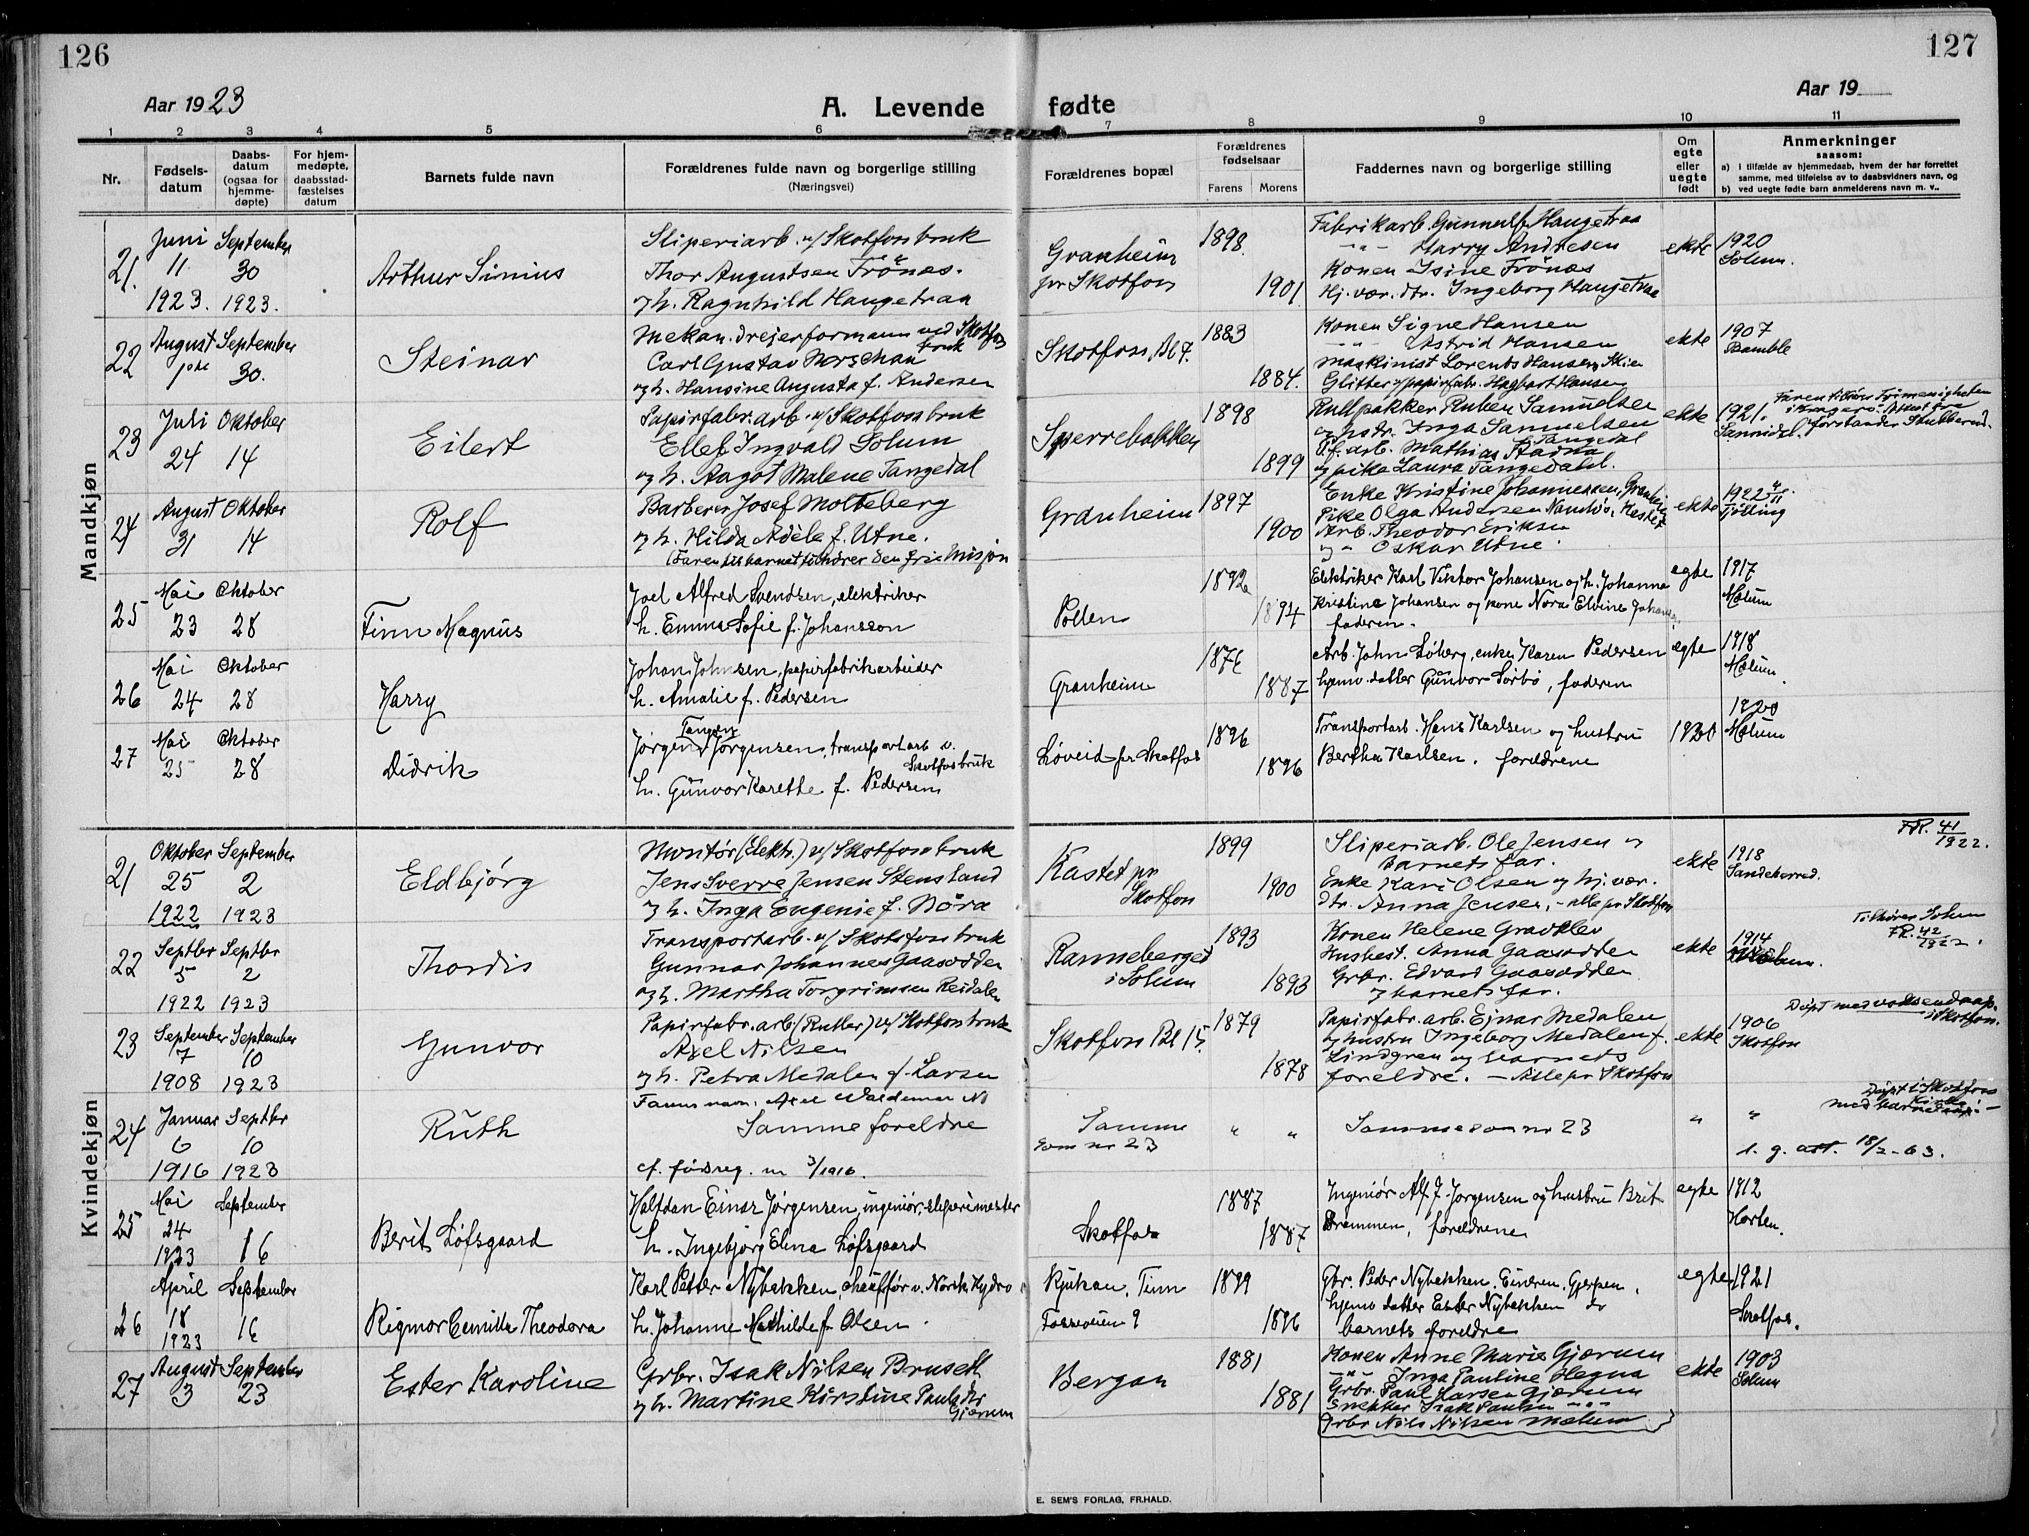 126
127
Aar 1923
A. Levende fødte
Aar 19
1 2 3 4 5 6 7 8 9 10 11
Nr.
Fødsels-
datum
Daabs-
datum
(ogsaa for
hjemme-
døpte)
For hjem-
medøpte,
daabsstad-
fæstelses
datum
Barnets fulde navn
Forældrenes fulde navn og borgerlige stilling
(Næringsvei)
Forældrenes bopæl
Forældrenes
fødselsaar
Farens Morens
Faddernes navn og borgerlige stilling
Om
egte
eller
uegte
født
Anmerkninger
saasom:
a) i tilfælde av hjemmedaab, hvem der har forrettet
samme, med tilføielse av to daabsvidners navn, og
b) ved uegte fødte barn anmelderens navn m. v..
Mandkjøn
21. Juni 11 1923. September 30 1923.
Arthur Sinius
Sliperiarb. v/ Skotfossbruk
Thor Augustsen Trönæs.
og h. Ragnhild Haugetraa
Granheim
pr Skotfoss
1898. 1901.
Fabrikarb. Gunnulf Haugetraa
-"- Harry Andresen
Konen Isine Trönæs
Hj. vær. dtr. Ingeborg Haugetraa
ekte
1920
Solum.
22 August 1ste September 30.
Steinar
Mekan. dreierformann ved Skotfoss
bruk
Carl Gustav
og h. Hansine Augusta f. Andersen
Skotfoss, Bl 7.
1883 1884.
Konen Signe Hansen
-"- Astrid Hansen
Maskinist Lorents Hansen, Skien
Glitter v/ papirfabr. Hagbart Hansen
ekte
1907
Bamble
23 Juli 24 Oktober 14
Eilert
Papirfabr. arb. v/ Skotfossbruk
Ellef Ingvald Solum
og h. Aagot Malene Tangedal
Sperrebakken
1898 1899
Rullpakker Ruben Samuelsen
og hstr. Inga Samuelsen
P.f. arb. Mathias Tangedal
og pike Laura Tangedahl.
ekte
1921.
Sannidal.
Faren tilhører Frimenigheten
i Kragerø. Attest fra
forstander
24 August 31 Oktober 14
Rolf
Barberer Josef Molteberg
og h. Hilda Adèle f. Utne.
(Faren til barnet tilhører den frie Misjon
Granheim
1897 1900
Enke Kristine Johannessen, Granheim
Pike Olga Andersen
Arb. Theodor Eriksen
og " Oskar Utne.
ekte
1922 4/11
Tjølling
25 Mai 23 Oktober 28
Finn Magnus
Joel Alfred Svendsen, elektriker
h. Emma Sofie f. Johansson
Pollen
1892 1894
Elektriker Karl Viktor Johansen og h. Johanna
Kristine Johansen og kone Nora Elvine Johansen,
faderen.
egte
1917
Mælum
26 Mai 24 Oktober 28
Harry
Johan Johnsen, papirfabrikarbeider
h. Amalie f. Pedersen
Granheim
1876 1887
Arb. John Løberg, enke Karen Pedersen
hjemv. datter Gunvor Sørbø, faderen
egte
1918
Mælum.
27 Mai 25 Oktober 28
Didrik
Tangen
Jørgen Jørgensen, transportarb v.
Skotfosbruk
h. Gunvor Karethe f. Pedersen
Løveid pr. Skotfos
1896 1896
Transportarb. Hans Karlsen og hustru
Bertha Karlsen. forældrene
1920
1920
Mælum
Kvindekjøn
21 Oktober 25 1922 September 2 1923
Eldbjørg
Montør (Elektr.) v/ Skotfossbruk
Jens Sverre Jensen Stensland
og h. Inga Eugenie f. Böra
Kastet pr
Skotfoss
1899 1900
Sliperiarb. Ole Jensen og
Barnets far.
Enke Kari Olsen og hj. vær.
dtr. Anna Jensen, - alle pr Skotfoss
ekte
1918
Sandeherred.
FR. 41/1922.
22 Septbr 5 1922 Septbr 2 1923
Thordis
Transportarb. v/ Skotsfossbruk
Gunnar Johannes Gaasodden
og h. Martha Torgrimsen Reidalen
Ramseberget
i Solum
1893 1893
Konen Helene Gravklev
Husbest. Anna Gaasodden
Grbr. Edvard Gaasodden
og barnets far.
ekte
1914
Tilhører Solum
FR. 42/1922.
23 September 7 1908 September 10 1923
Gunvor
Papirfabr. arb. (Rutler) v/ Skotfossbruk
Axel Nilsen
og h. Petra Medalen f. Larsen
Farens navn: Axel Waldemar N
Skotfoss Bl 15.
1879 1878
Papirfabr. arb. Ejnar Medalen
og hustru Ingeborg Medalen f.
Lindgren og barnets
foreldre. - Alle pr Skotfoss
ekte
1906
Skotfoss
Døpt med voksendaap
i Skotfoss.
24 Januar 6 1916 Septbr 10 1923
Ruth
Samme foreldre
cf. fødreg. nr 3/1916.
Samme
som nr 23
" "
Samme som nr 23
"
"
Døpt i Skotfoss
Kirke
med barnedaap. -
l. g. att. 18/2-63.
25 Mai 24 1923 September 16
Berit Løfsgaard
Halfdan Einar Jørgensen, ingeniør, sliperimester
h. Ingebjørg Elina Løfsgaard
Skotfoss
1887 1887
Ingeniør Alf J. Jørgensen og hustru Brit
Drammen, forældrene
egte
1912
Horten.
26 April 18 1923 September 16
Rigmor Camilla Theodora
Karl Petter Nybakken, chauffør v. Norsk Hydro
h. Johanne Mathilde f. Olsen.
Rjukan, Tinn
Fosseveien 9
1899 1896
Gbr. Peder Nybakken, Gjerpen,
hjemv datter Ester Nybakken do
barnets forældre
egte
1921
Skotfos.
27 August 3 September 23
Ester Karoline
Grbr. Isak Nilsen Bruseth
og h. Martine Kirstine Paulsdtr
Gjærum
Bergan
1881 1881
Konen Anne Marie Gjærum
-"- Inga Pauline Hegna
Grbr. Paul Larsen Gjærum
Snekker Isak Paulsen -"-
Grbr Nils Nilsen Mælum
ekte
1903
Solum
E. SEM'S FORLAG, FR.HALD.